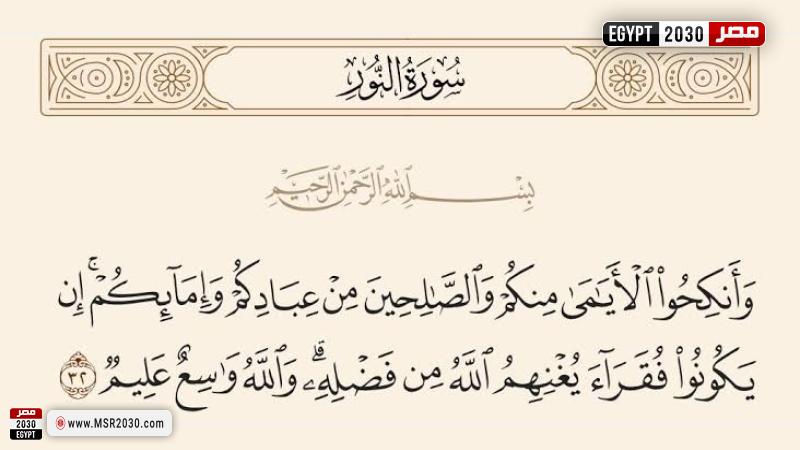 EGYPT 2030 مصر
سُورَةُ النُّورِ
بِسْمِ ٱللَّهِ ٱلرَّحْمَٰنِ ٱلرَّحِيمِ
وَأَنكِحُوا۟ ٱلْأَيَـٰمَىٰ مِنكُمْ وَٱلصَّـٰلِحِينَ مِنْ عِبَادِكُمْ وَإِمَآئِكُمْ ۚ إِن
يَكُونُوا۟ فُقَرَآءَ يُغْنِهِمُ ٱللَّهُ مِن فَضْلِهِۦ ۗ وَٱللَّهُ وَٰسِعٌ عَلِيمٌ ٣٢
مصر
2030
EGYPT
www.MSR2030.com